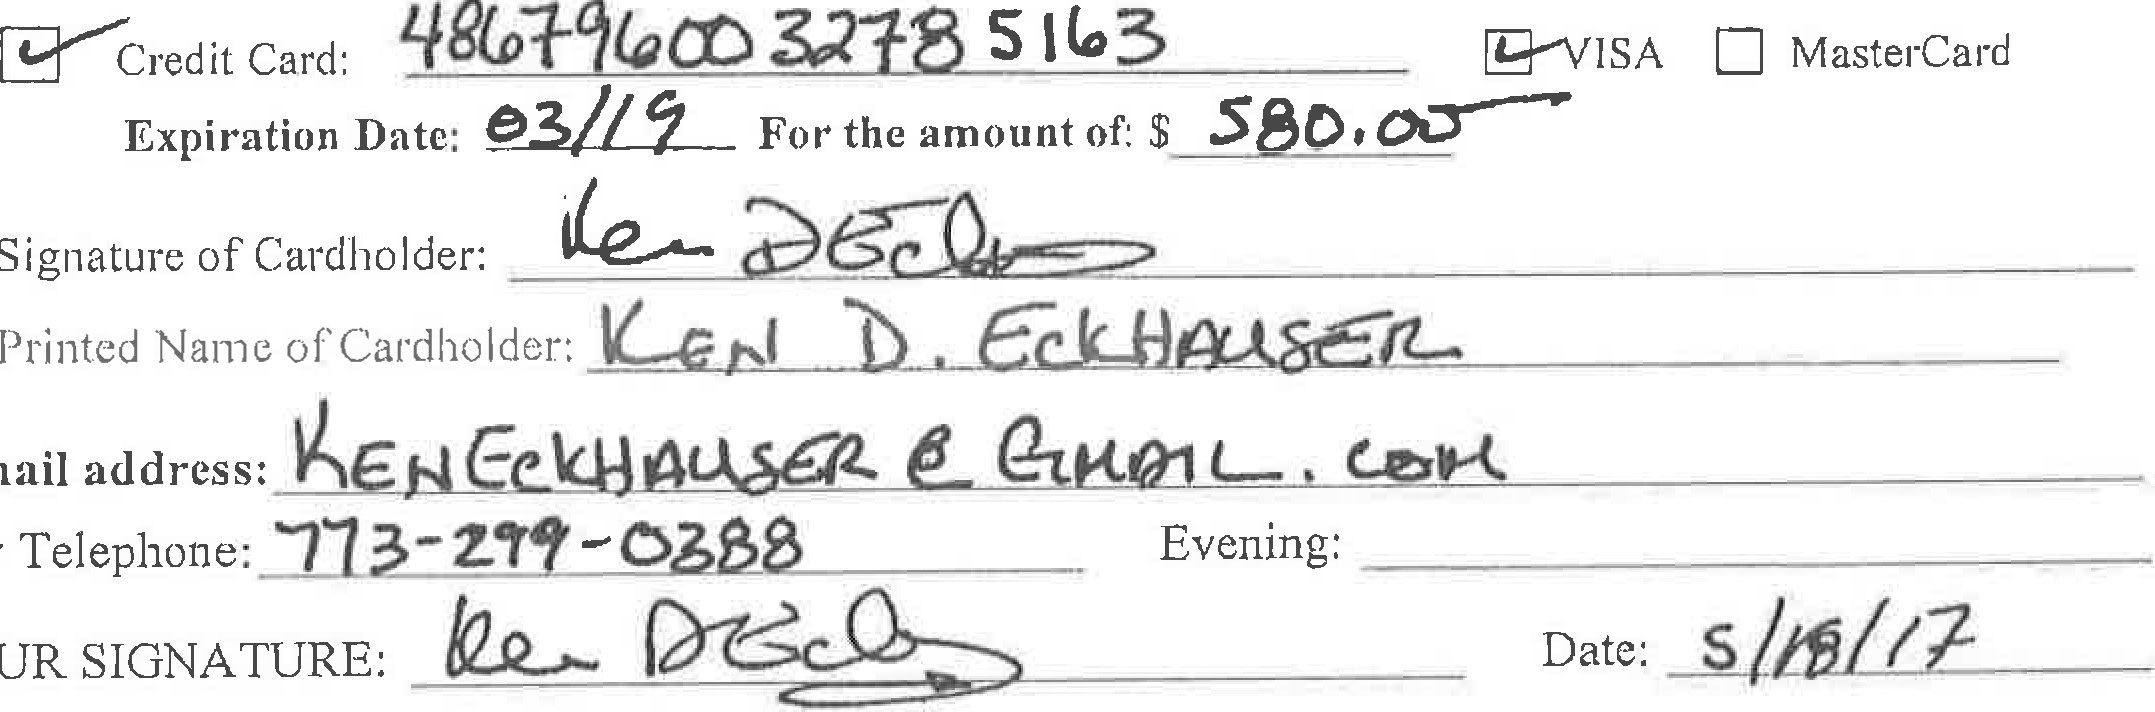 Credit Card: 4867960032785163 VISA MasterCard
Expiration Date: 03/19 For the amount of: $ 580.00
Signature of Cardholder:
Printed Name of Cardholder: KEN D. ECKHAUSER
mail address: KENECKHAUSER@GMAIL.COM
Telephone: 773-299-0388 Evening:
UR SIGNATURE: Date: 5/18/17